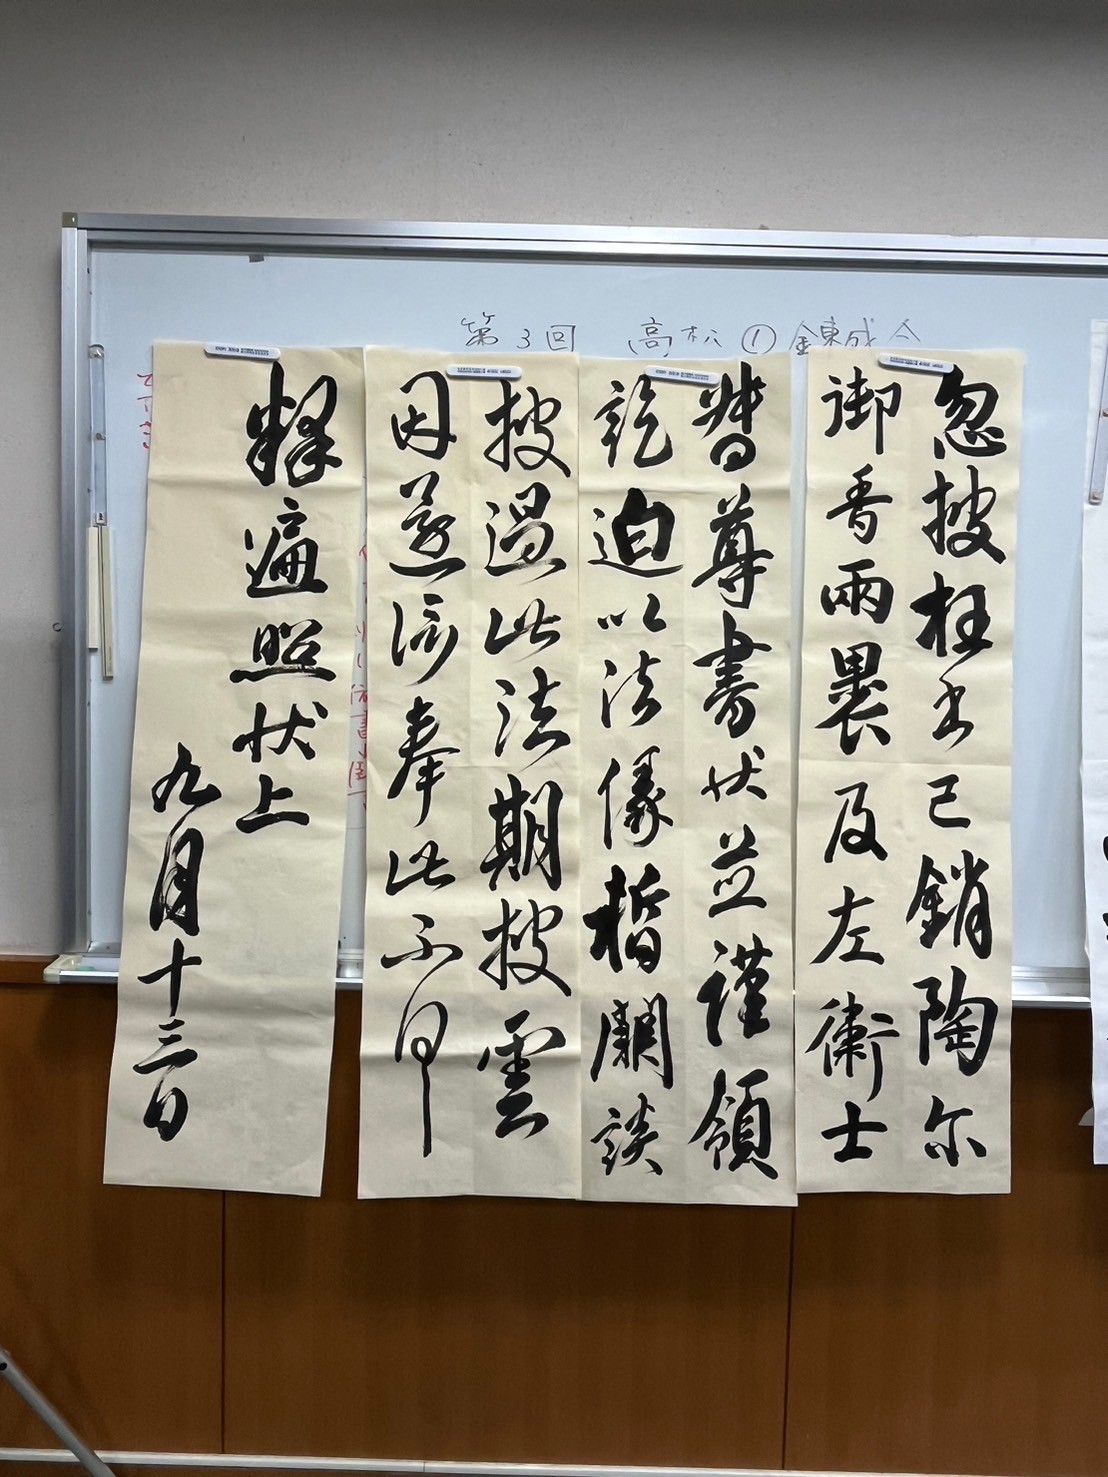 第3回 高松① 錬成会
忽披枉書已銷陶尓
御香兩裹及左衛士
督尊書状並謹領
訖迫以法縁暫闕談
披過此法期披雲
因還信奉此不具
釋遍照状上
九月十三日